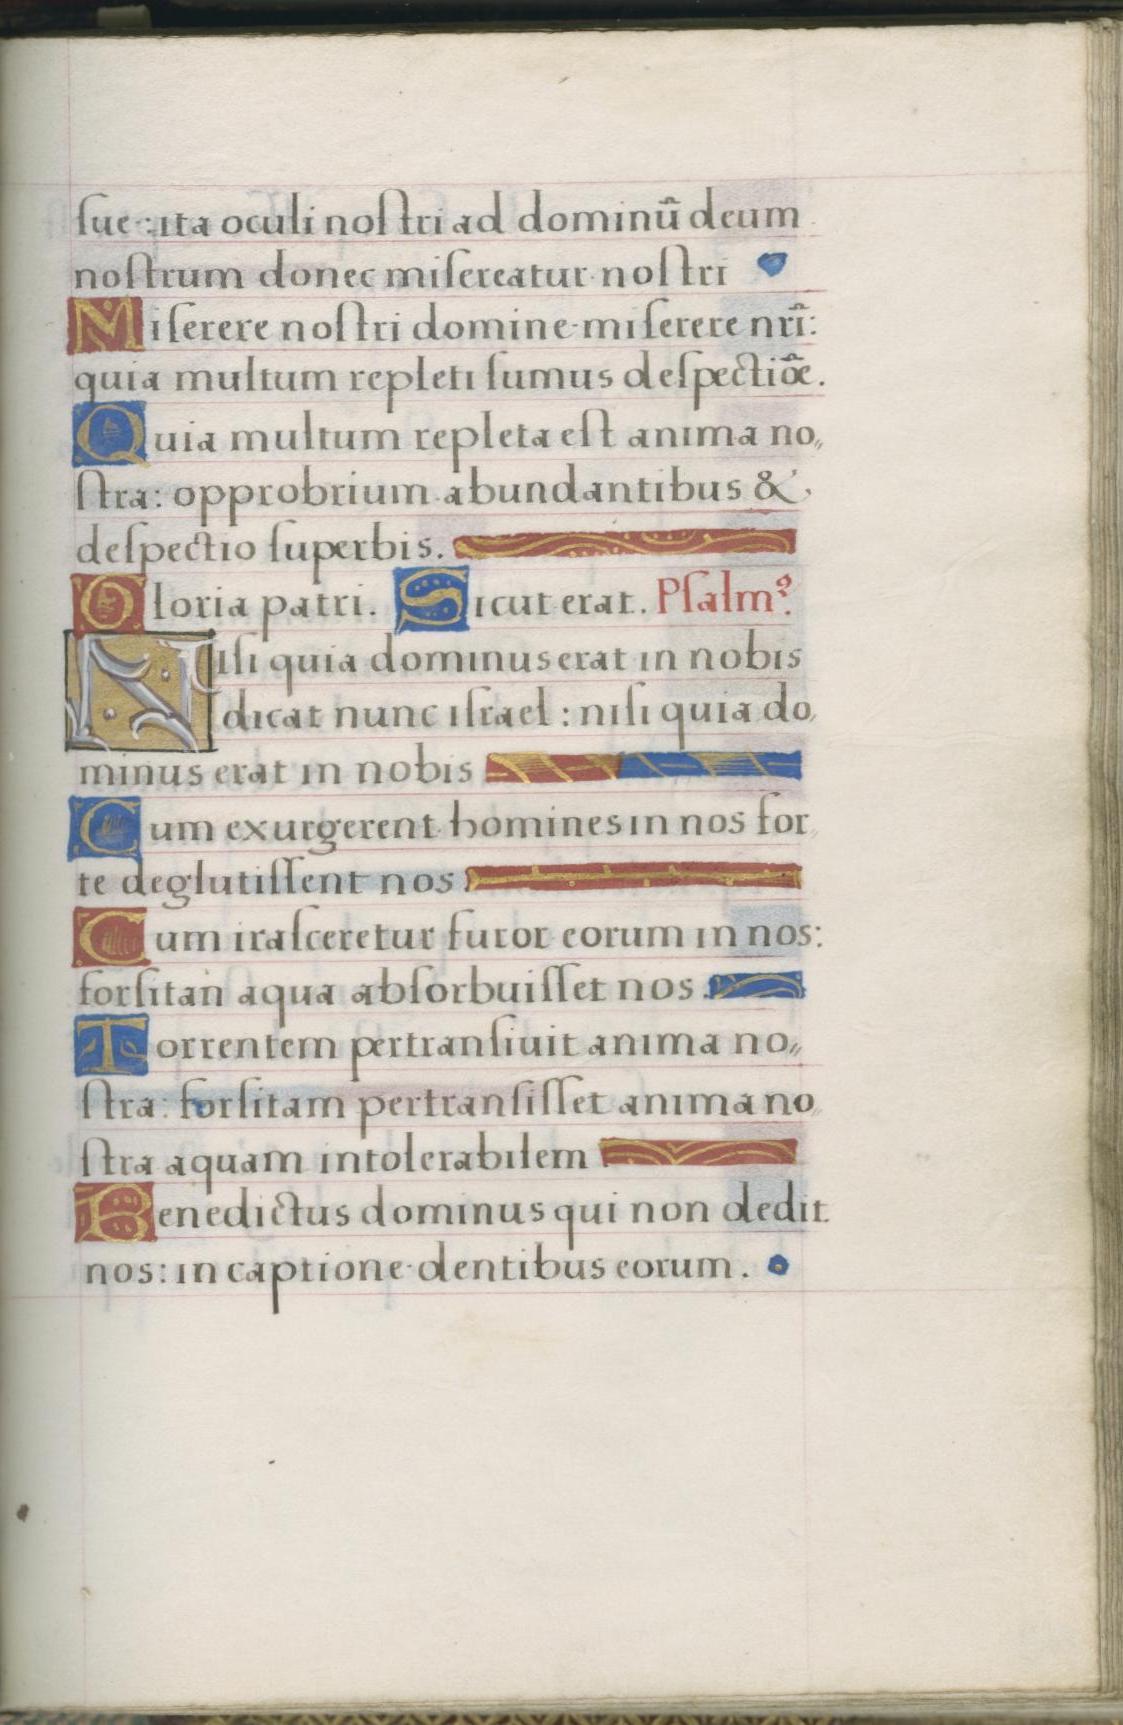 ſue: ita oculi noſtri ad dominū deum
noſtrum donec miſereatur noſtri
Miſerere noſtri domine miſerere nrī:
quia multum repleti ſumus deſpectiōe.
Quia multum repleta eſt anima no„
ſtra: opprobrium abundantibus &
deſpectio ſuperbis.
Gloria patri. Sicut erat. Pſalmꝰ.
Niſi quia dominus erat in nobis
dicat nunc iſrael: niſi quia do„
minus erat in nobis
Cum exurgerent homines in nos for„
te deglutiſſent nos
Cum iraſceretur furor eorum in nos:
forſitan aqua abſorbuiſſet nos.
Torrentem pertranſiuit anima no„
ſtra: forſitam pertranſiſſet anima no„
ſtra aquam intolerabilem
Benedictus dominus qui non dedit
nos: in captione dentibus eorum.